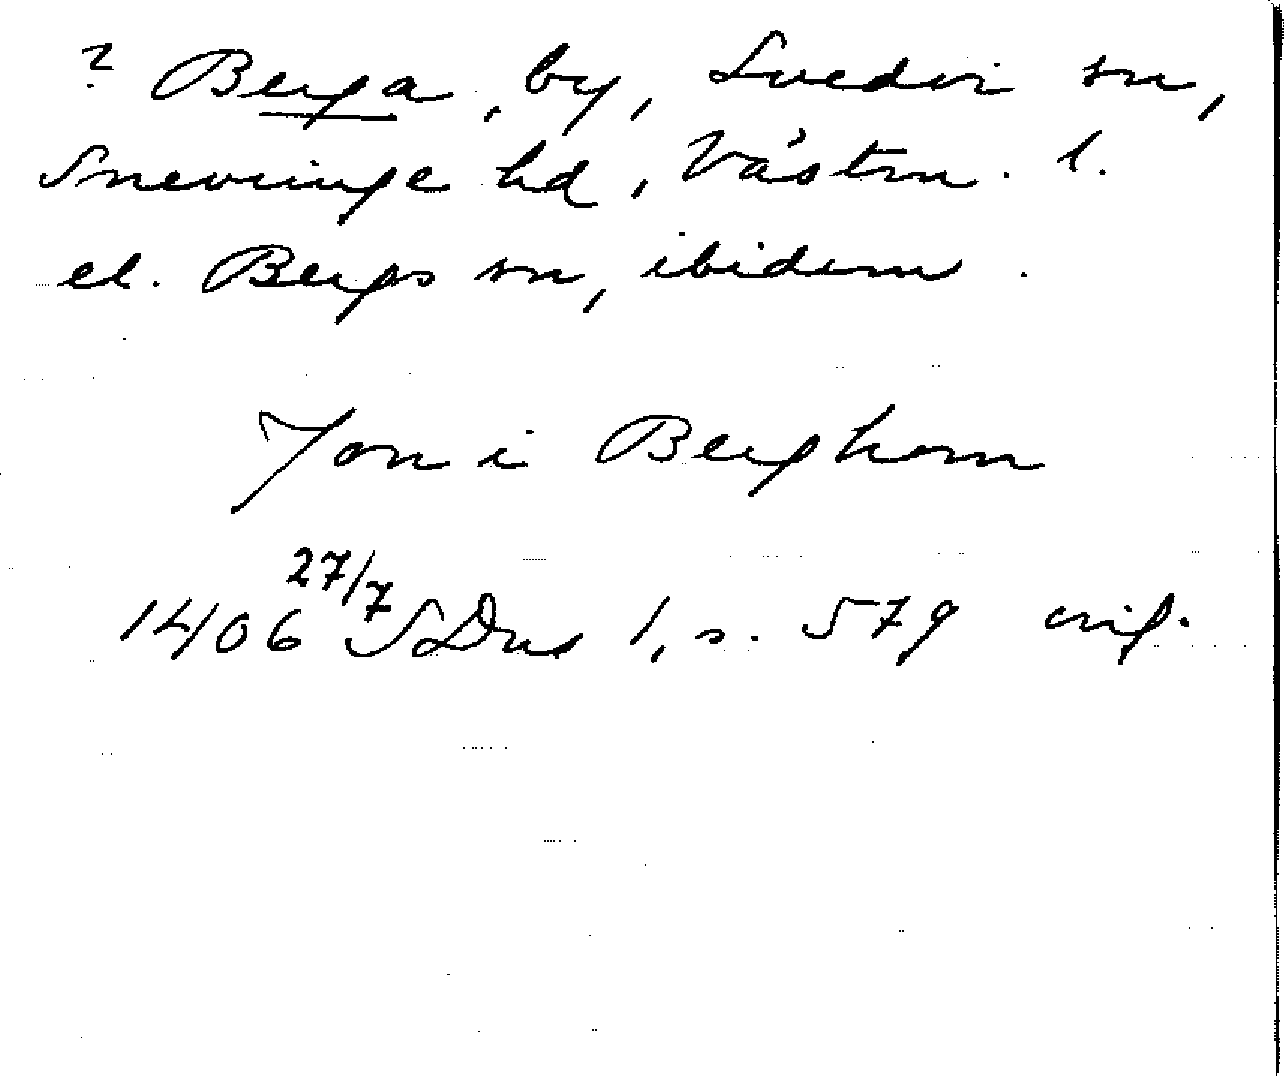 ? Berga, by, Svedvi sn,
Snevringe hd, Västm. l.
el. Bergs sn, ibidem.
Jon i Berghem
1406 27/7 SDns 1, s. 579 orig.